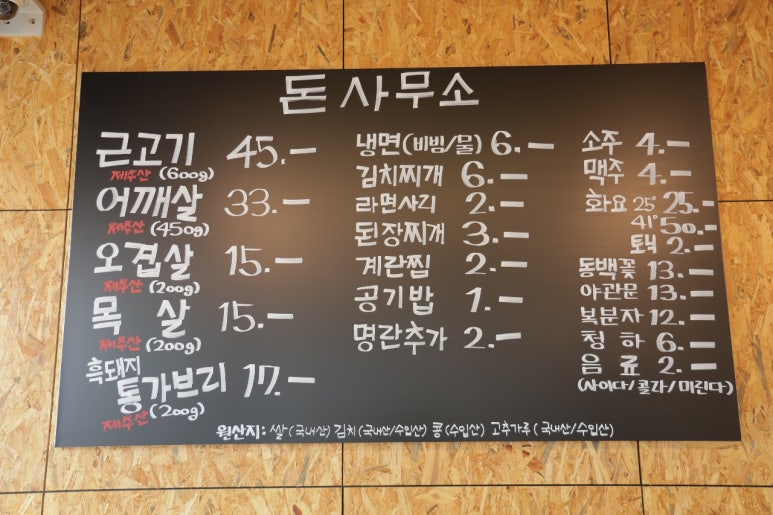 돈사무소
근고기 45.-
제주산 (600g)
어깨살 33.-
제주산 (450g)
오겹살 15.-
제주산 (200g)
목 살 15.-
제주산 (200g)
흑돼지
통가브리 17.-
제주산 (200g)
냉면(비빔/물) 6.-
김치찌개 6.-
라면사리 2.-
된장찌개 3.-
계란찜 2.-
공기밥 1.-
명란추가 2.-
소주 4.-
맥주 4.-
화요 25° 25.-
41° 50.-
토닉 2.-
동백꽃 13.-
야관문 13.-
복분자 12.-
청하 6.-
음료 2.-
(사이다/콜라/미린다)
원산지: 쌀(국내산) 김치(국내산/수입산) 콩(수입산) 고추가루(국내산/수입산)